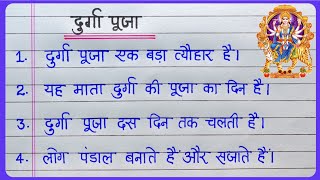 दुर्गा पूजा
1. दुर्गा पूजा एक बड़ा त्यौहार है।
2. यह माता दुर्गा की पूजा का दिन है।
3. दुर्गा पूजा दस दिन तक चलती है।
4. लोग पंडाल बनाते हैं और सजाते हैं।